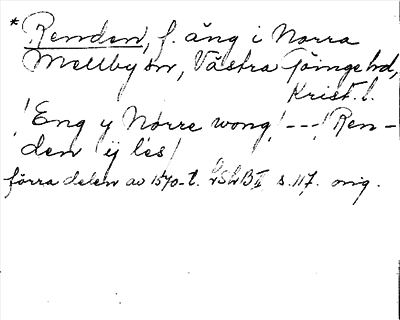 * Renden, f. äng i Norra
Mellby sn, Västra Göinge hd,
Krist. l.
! Eng y Nörre wong! --- ! Ren-
den ij les!
förra delen av 1570-t. LSLB II s. 117. orig.